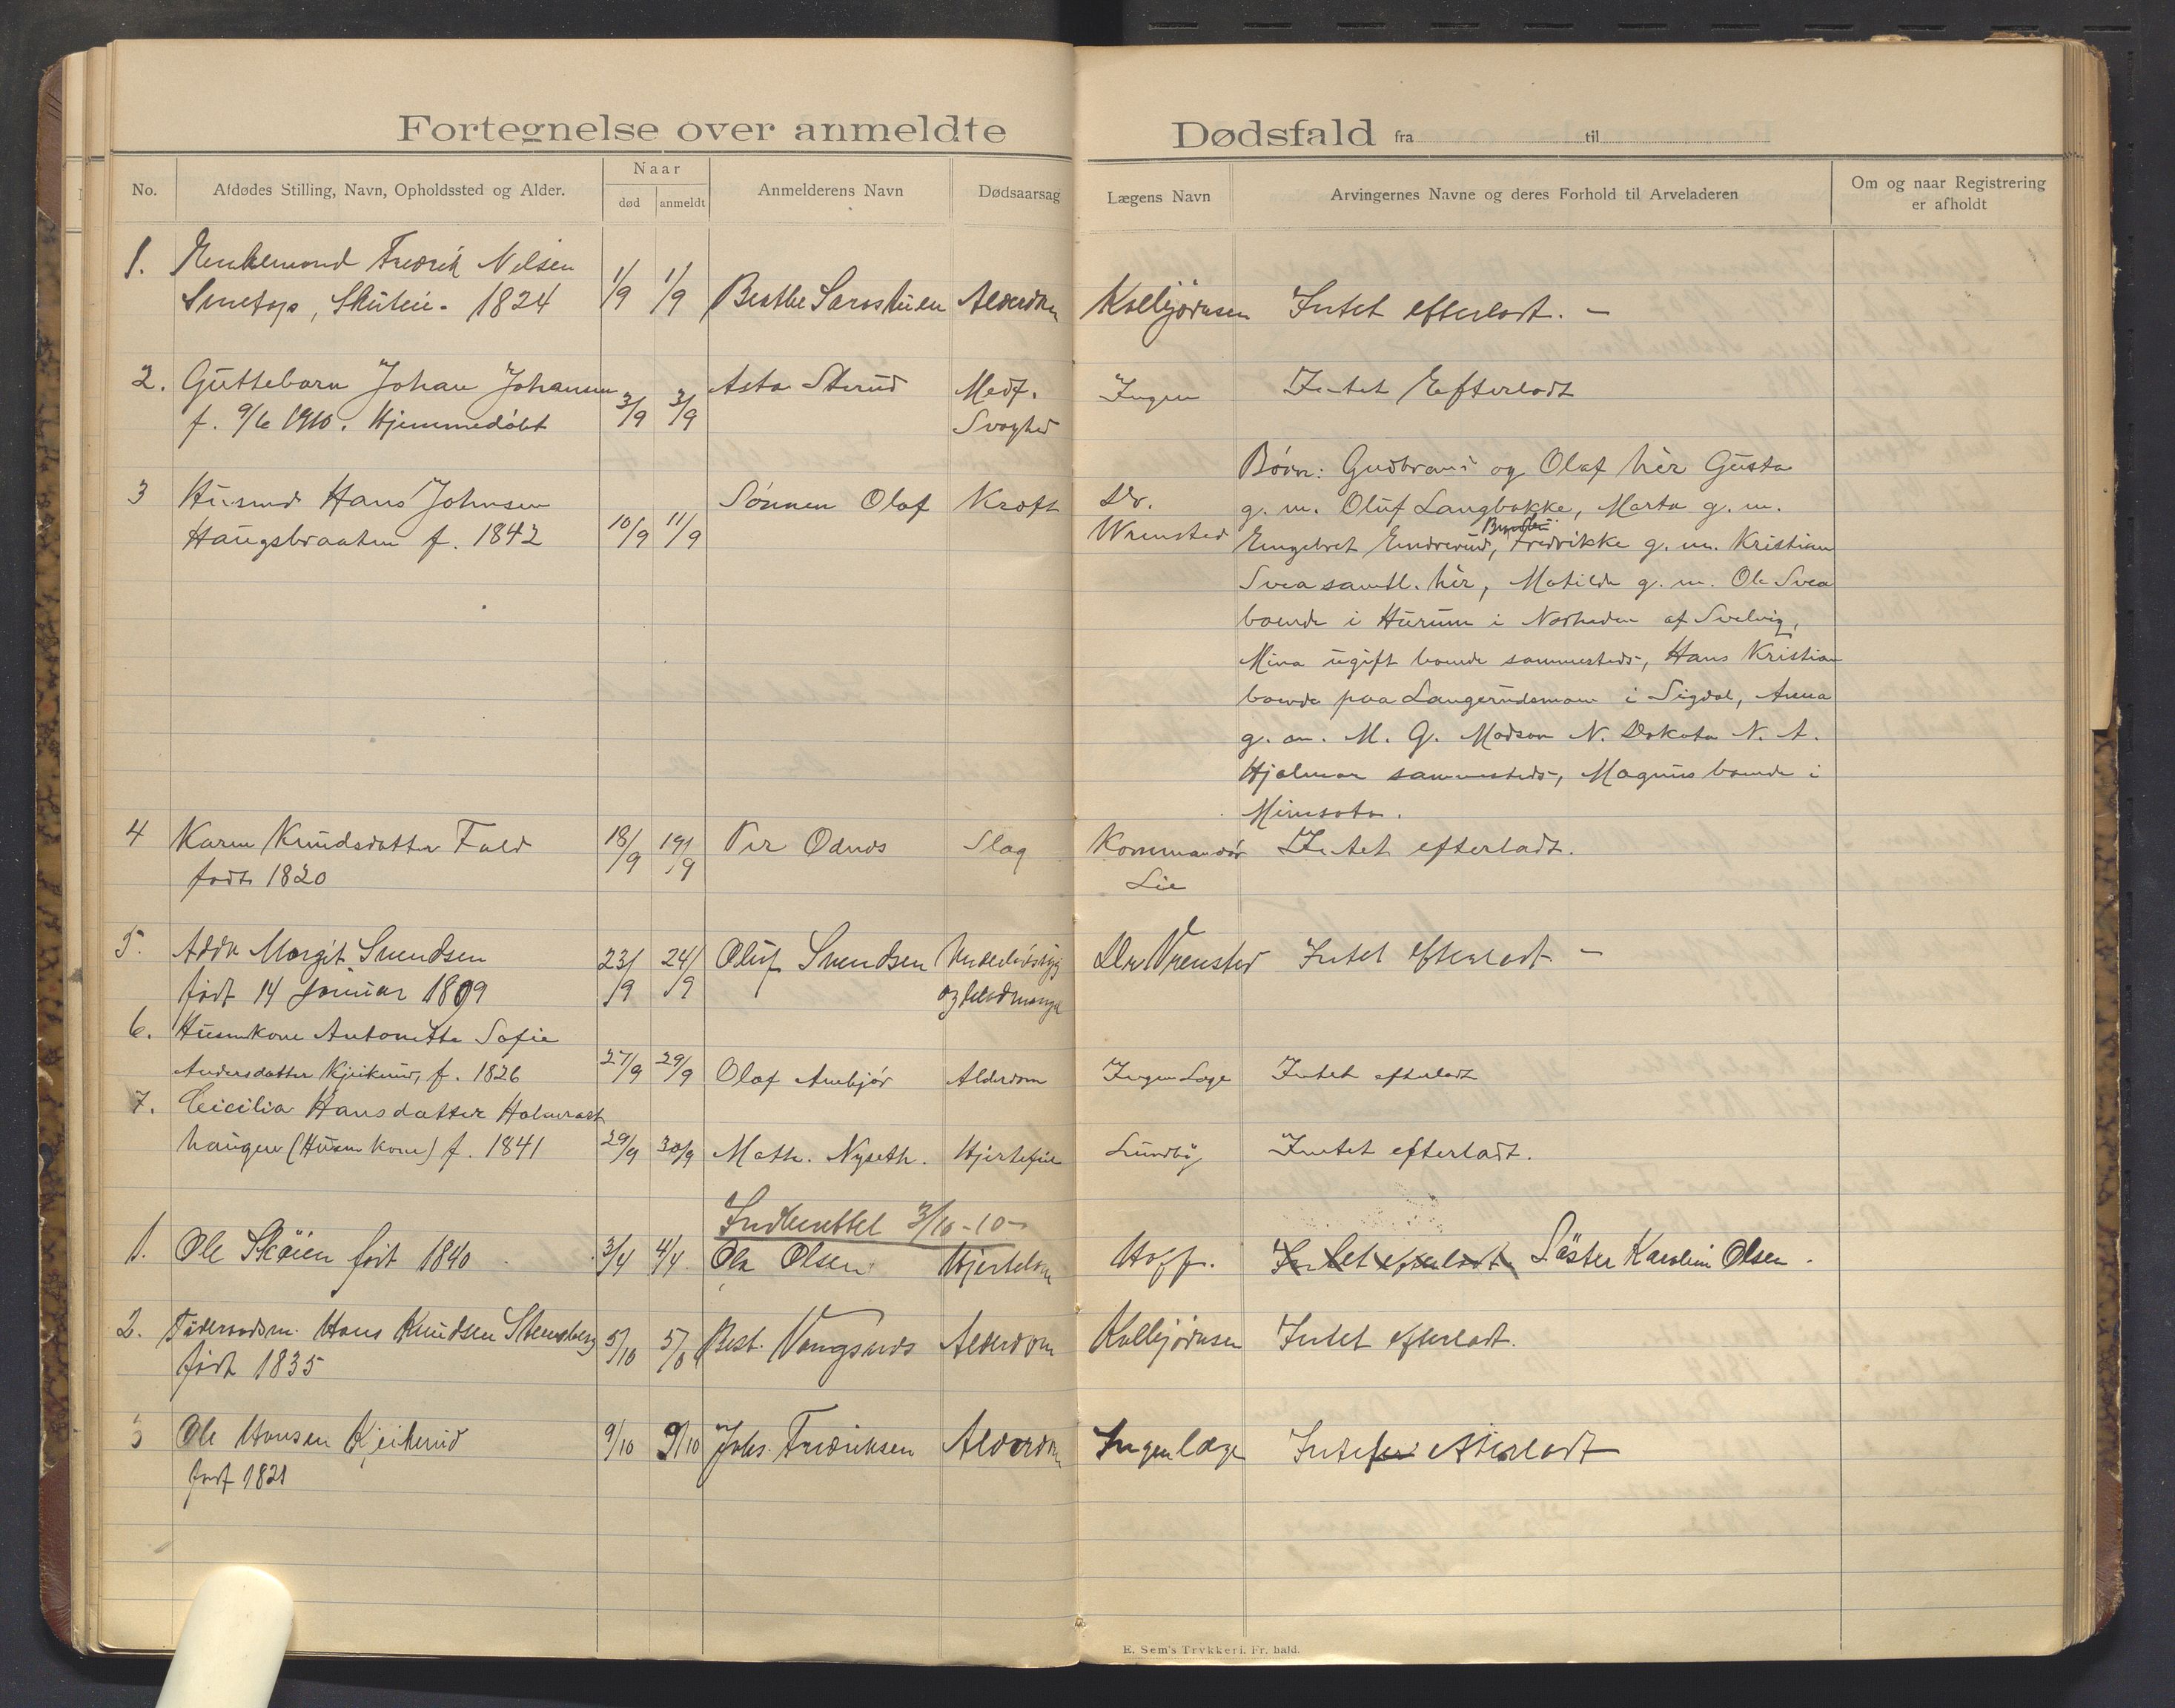 Fortegnelse over anmeldte Dødsfald fra til
No.
Afdødes Stilling, Navn, Opholdssted og Alder.
Naar
død
anmeldt
Anmelderens Navn
Dødsaarsag
Lægens Navn
Arvingernes Navne og deres Forhold til Arveladeren
Om og naar Registrering
er afholdt
1. Fredrik Nilsen
1824 1/9 1/9 Alderdom Kolbjørnsen Intet efterladt. -
2. Guttebarn Johan Johansen 3/9 3/9 Asta Sterud Medf. Ingen Intet Efterladt
f. 9/6 1910. Hjemmedøbt Svaghed
Børn: Gudbrand og Olaf hèr Gusta
3 Husmd Hans Johnsen 10/9 11/9 Sønnen Olaf Kræft Dr. g. m. Oluf Langbakke, Marta g. m.
Haugsbraaten f. 1842 Wrensted Engebret Endrerud, Fredrikke g. m. Kristian
Svea samtl. hèr, Matilde g. m. Ole Svea
boende i Hurum i Nærheden af Svelvig,
Mina ugift boende sammesteds, Hans Kristian
boende paa Langerudsmoen i Sigdal, Anna
g. m. M. G. Madson N. Dakota N. A.
Hjalmar sammesteds, Magnus boende i
Minsota.
4 Karen Knudsdatter Fald 18/9 19/9 Per Odnes Slag Kommandør Intet efterladt.
født 1820 Lie
5. Margit Svendsen 23/9 24/9 Oluf Svendsen Dr Wrensted Intet efterladt -
født 14 Januar 1899
6. Husmkone Antonette Sofie
Andersdatter Kjeikerud, f. 1826 27/9 29/9 Olaf Anbjør Alderdom Ingen Læge Intet efterladt
7. Cicilia Hansdatter
haugen (Husm kone) f. 1841 29/9 30/9 Math. Nyseth. Hjertefeil Lundby Intet efterladt.
Indberettet 3/10-10-
1. Ole Skøien født 1840 3/4 4/4 Ole Olsen Hoff. Intet efterladt Søster Karoline Olsen.
2. Føderaadsm. Hans Knudsen Stensberg 5/10 5/10 Best. Vangsnes Alderdom Kolbjørnsen Intet efterladt.
født 1835
3 Ole Hansen Kjeikerud 9/10 9/10 Johs. Fredriksen Alderdom Ingen læge Intet efterladt
født 1821
E. Sem's Trykkeri. Fr. hald.